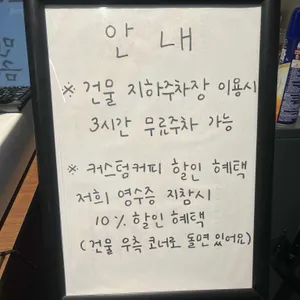 안 내
※ 건물 지하주차장 이용시
3시간 무료주차 가능
※ 커스텀커피 할인 혜택
저희 영수증 지참시
10% 할인 혜택
(건물 우측 코너로 돌면 있어요)